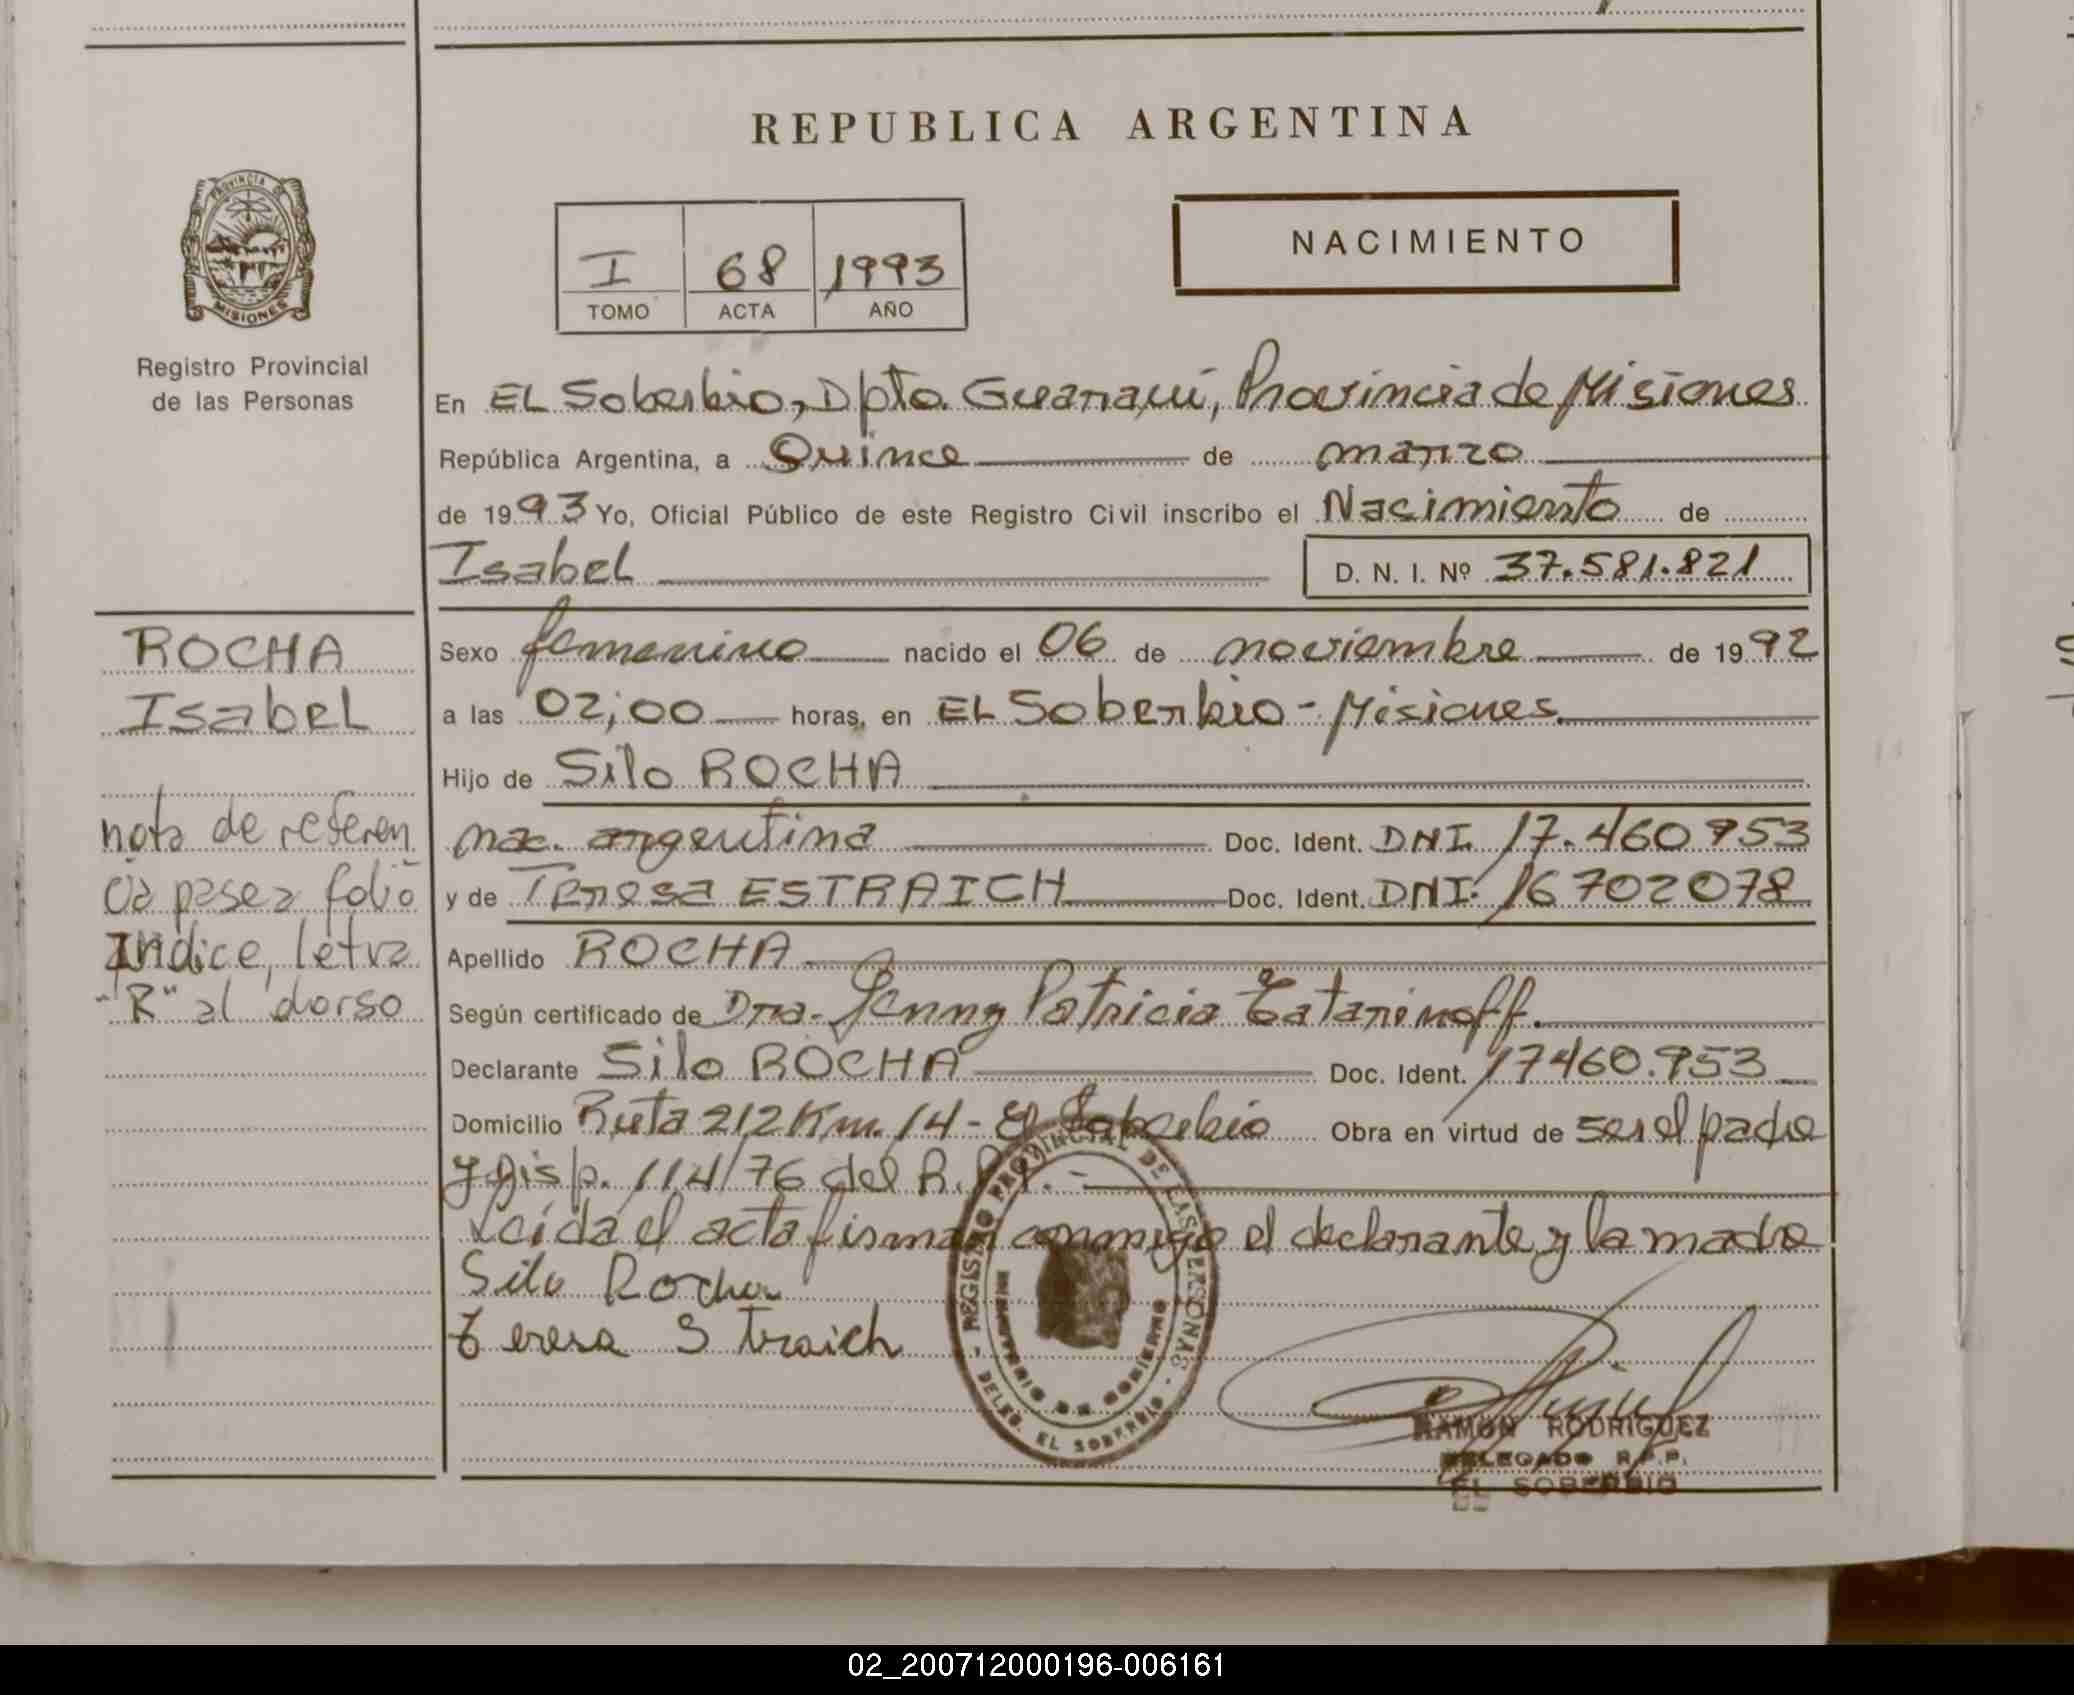 REPUBLICA ARGENTINA
PROVINCIA DE
MISIONES
Registro Provincial
de las Personas
I 68 1993
TOMO ACTA AÑO
NACIMIENTO
En EL Soberbio, Dpto. Guaraní, Provincia de Misiones
República Argentina, a Quince de marzo
de 1993 Yo, Oficial Público de este Registro Civil inscribo el Nacimiento de
Isabel D. N. I. Nº 37.581.821
ROCHA
Isabel
nota de referen
cia pase a folio
Indice, letra
"R" al dorso
Sexo femenino nacido el 06 de noviembre de 1992
a las 02,00 horas, en EL Soberbio - Misiones
Hijo de Silo ROCHA
nac. argentina Doc. Ident. DNI. 17.460953
y de Teresa ESTRAICH Doc. Ident. DNI. 16702078
Apellido ROCHA
Según certificado de Dra. Jenny Patricia Tatarinoff.
Declarante Silo ROCHA Doc. Ident. 17460.953
Domicilio Ruta 212 Km. 14 - El Soberbio Obra en virtud de ser el padre
y Disp. 114/76 del R.P.P. -
Leida el acta firman conmigo el declarante y la madre
Silo Rocha
Teresa Straich
- REGISTRO PROVINCIAL DE LAS PERSONAS -
DELEG. EL SOBERBIO
MINISTERIO DE GOBIERNO
RAMON RODRIGUEZ
DELEGADO R.P.P.
EL SOBERBIO
02_200712000196-006161